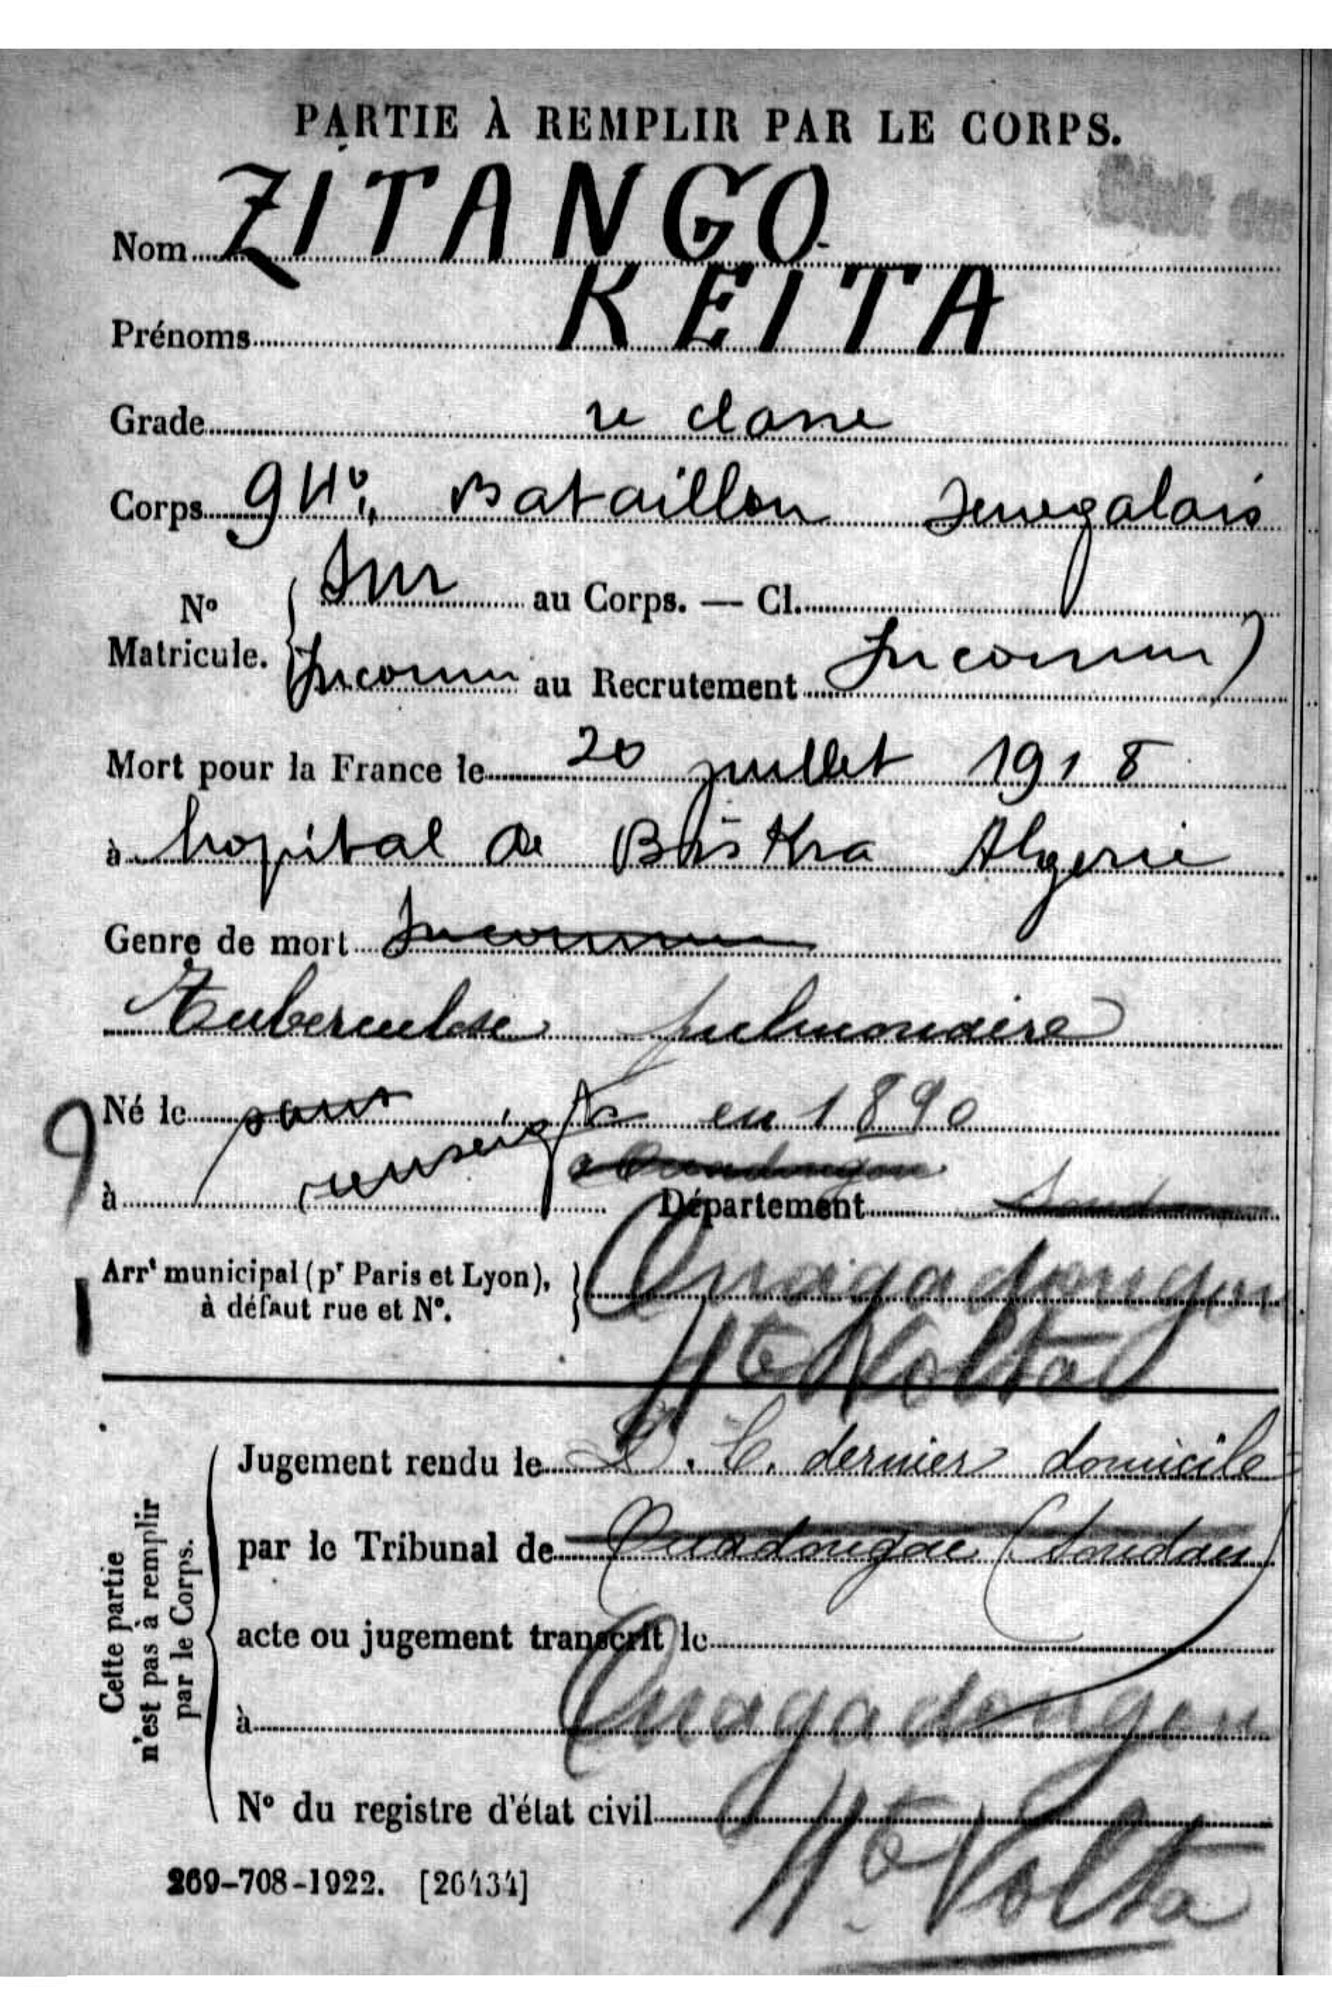 PARTIE À REMPLIR PAR LE CORPS.
État des
Nom ZITANGO
Prénoms KEITA
Grade 2e classe
Corps 94e Bataillon Senegalais
No Matricule. { Inc au Corps. — Cl.
Inconnu au Recrutement Inconnu
Mort pour la France le 20 juillet 1918
à hopital de Biskra Algerie
Genre de mort Inconnu
Tuberculose pulmonaire
Né le sans renseigts en 1890
à Ouadougou Département Soudan
Arrt municipal (pr Paris et Lyon), à défaut rue et No. } Ouagadougou
Hte Volta
Jugement rendu le D. C. dernier domicile
par le Tribunal de Ouadougou (Soudan)
acte ou jugement transcrit le
à Ouagadougou
No du registre d'état civil
Hte Volta
Cette partie n'est pas à remplir par le Corps.
269-708-1922. [26434]